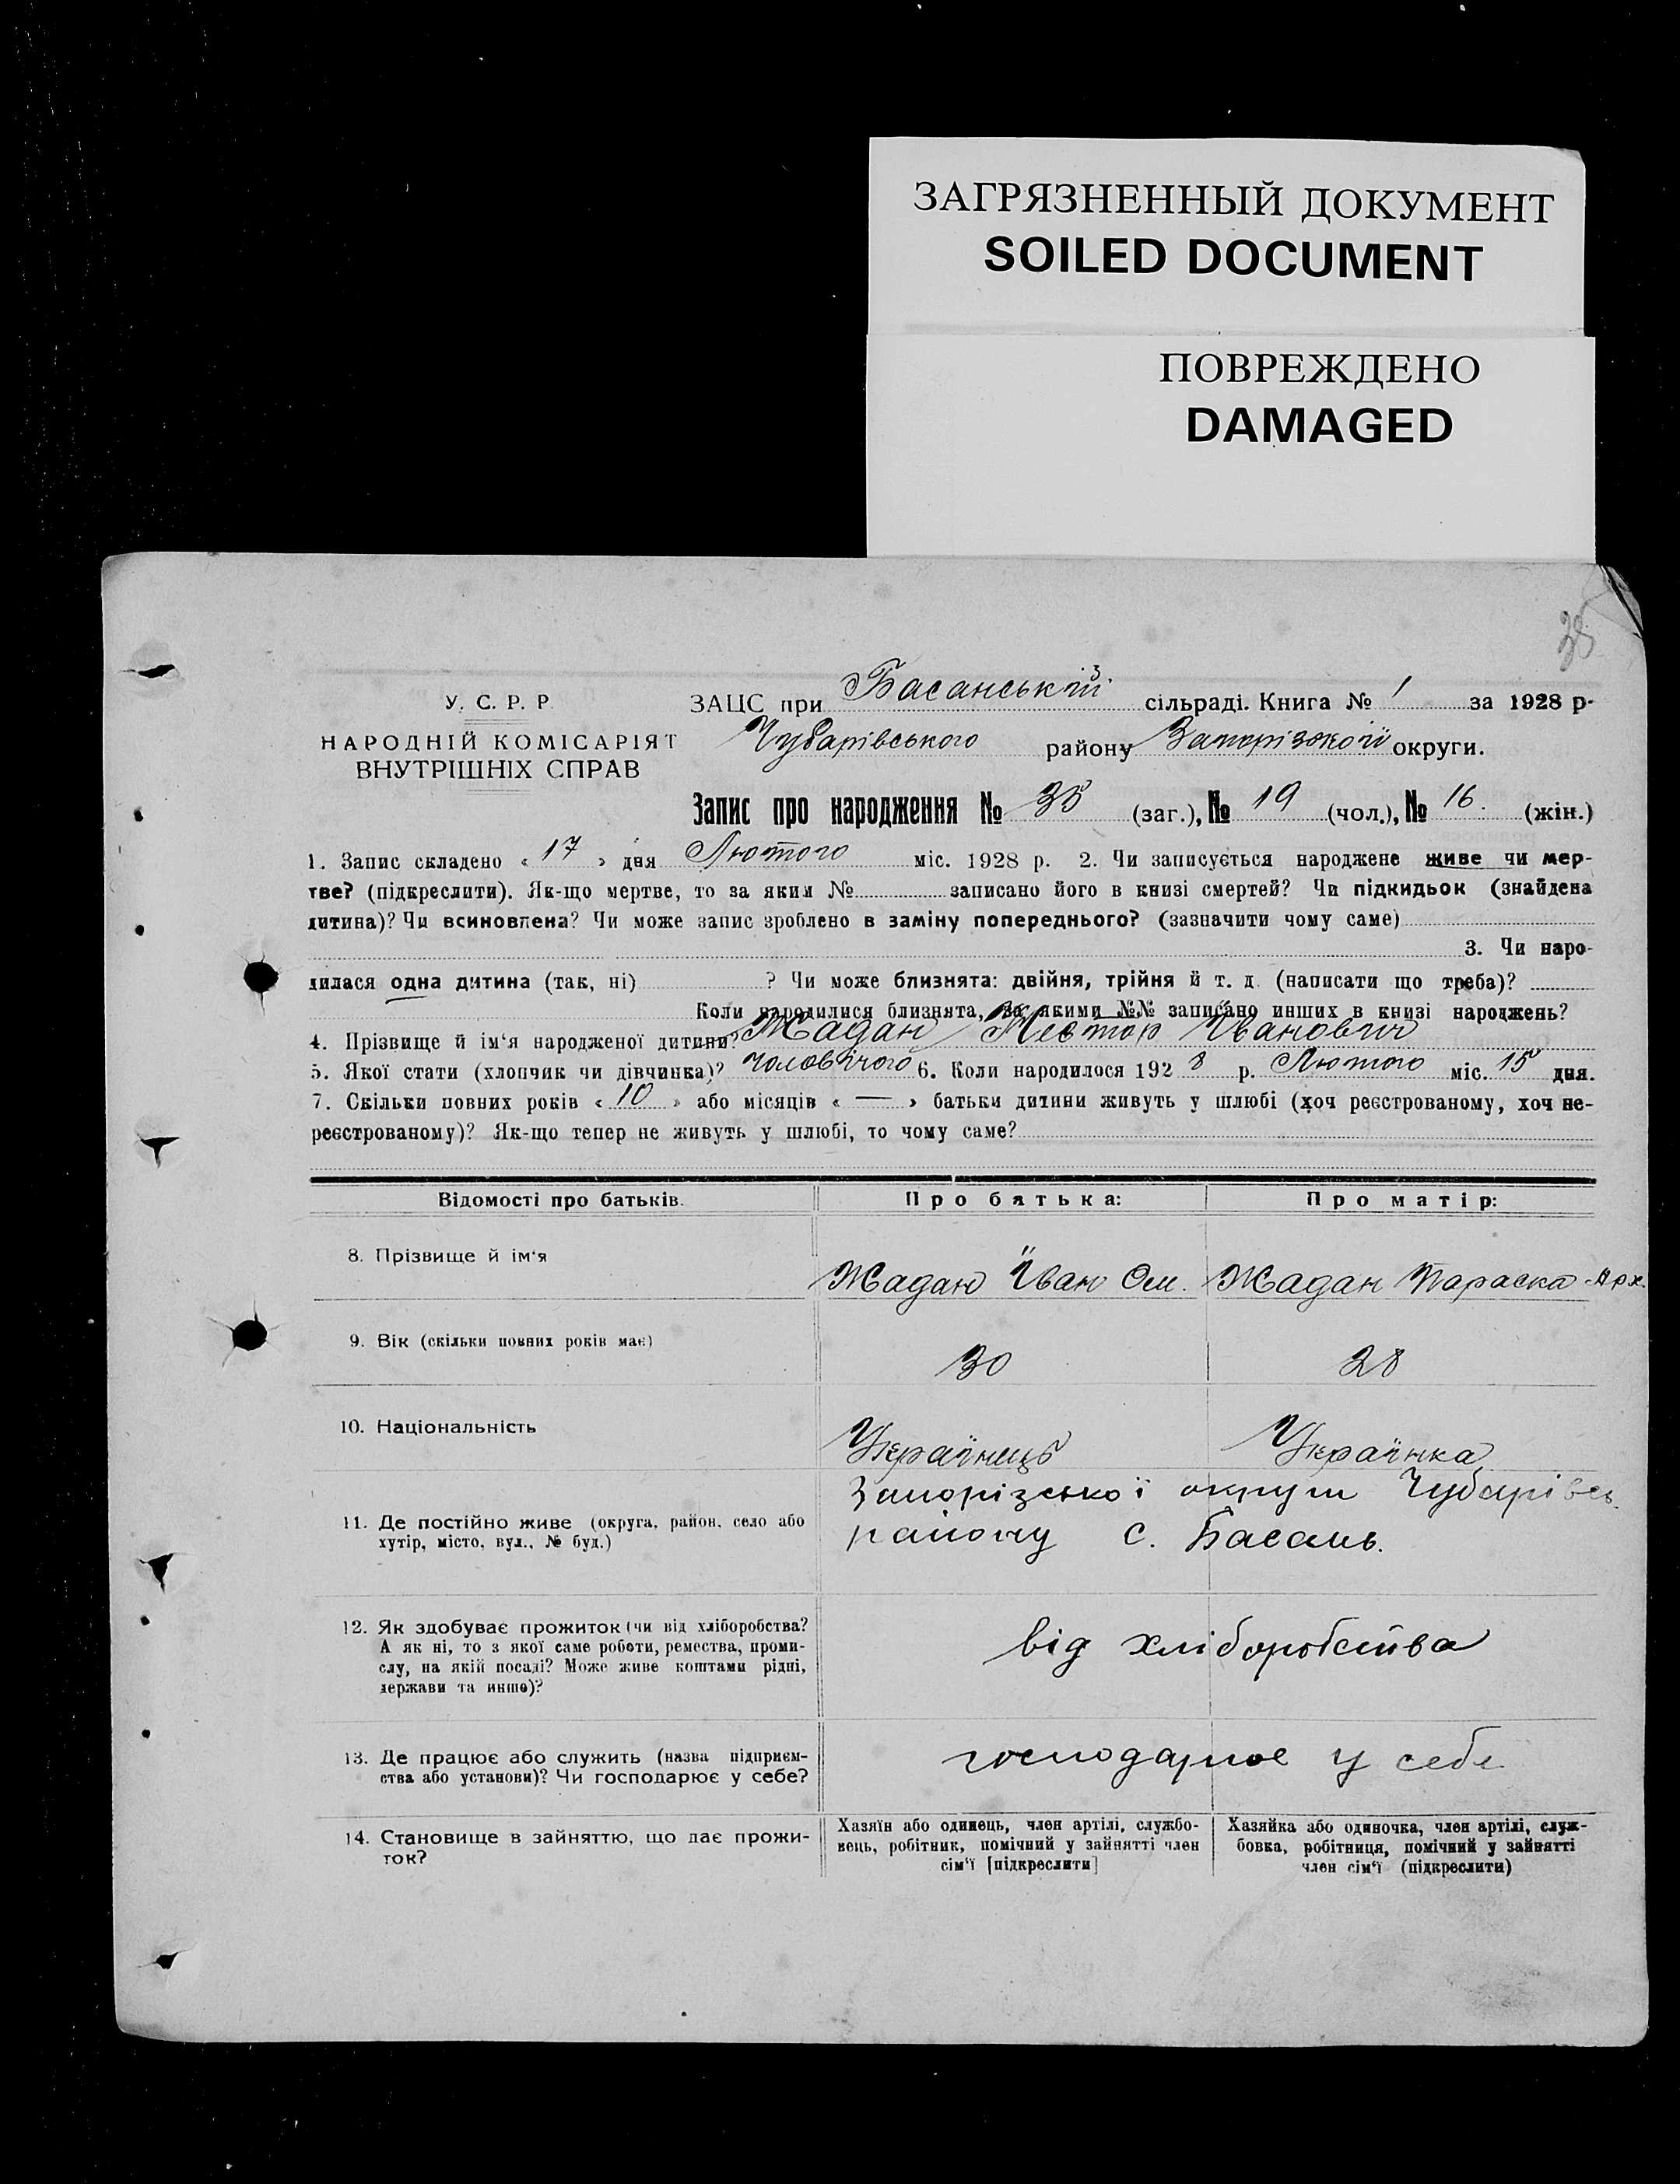 ЗАГРЯЗНЕННЫЙ ДОКУМЕНТ
SOILED DOCUMENT
ПОВРЕЖДЕНО
DAMAGED
У. С. Р. Р.
НАРОДНІЙ КОМІСАРІЯТ
ВНУТРІШНІХ СПРАВ
ЗАЦС при Басанській сільраді. Книга № 1 за 1928 р.
Чубарівського району Запорізької округи.
Запис про народження № 35 (заг.), № 19 (чол.), № 16. (жін.)
1. Запис складено « 17 » дня Лютого міс. 1928 р. 2. Чи записується народжене живе чи мер-
тве? (підкреслити). Як-що мертве, то за яким № записано його в книзі смертей? Чи підкидьок (знайдена
дитина)? Чи всиновлена? Чи може запис зроблено в заміну попереднього? (зазначити чому саме)
3. Чи наро-
дилася одна дитина (так, ні) ? Чи може близнята: двійня, трійня й т. д. (написати що треба)?
Коли народилися близнята, за якими №№ записано инших в книзі народжень?
4. Прізвище й ім'я народженої дитини? Жадан Нестор Іванович
5. Якої стати (хлопчик чи дівчинка)? чоловічого 6. Коли народилося 192 8 р. Лютого міс. 15 дня.
7. Скільки повних років « 10 » або місяців « — » батьки дитини живуть у шлюбі (хоч реєстрованому, хоч не-
реєстрованому)? Як-що тепер не живуть у шлюбі, то чому саме?
Відомості про батьків. Про батька: Про матір:
8. Прізвище й ім'я Жадан Їван Ом. Жадан Параска Арх.
9. Вік (скільки повних років має) 30 28
10. Національність Українець Українка
11. Де постійно живе (округа, район, село або
хутір, місто, вул., № буд.)
Запорізської округи Чубарівсь.
району с. Басань.
12. Як здобуває прожиток (чи від хліборобства?
А як ні, то з якої саме роботи, ремества, проми-
слу, на якій посаді? Може живе коштами рідні,
держави та инше)?
від хліборобства
13. Де працює або служить (назва підприєм-
ства або установи)? Чи господарює у себе?
господарює у себе
14. Становище в зайняттю, що дає прожи-
ток?
Хазяїн або одинець, член артілі, службо-
вець, робітник, помічний у зайнятті член
сім'ї [підкреслити]
Хазяйка або одиночка, член артілі, служ-
бовка, робітниця, помічний у зайнятті
член сім'ї (підкреслити)